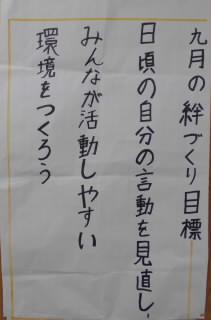 九月の絆づくり目標
日頃の自分の言動を見直し、
みんなが活動しやすい
環境をつくろう